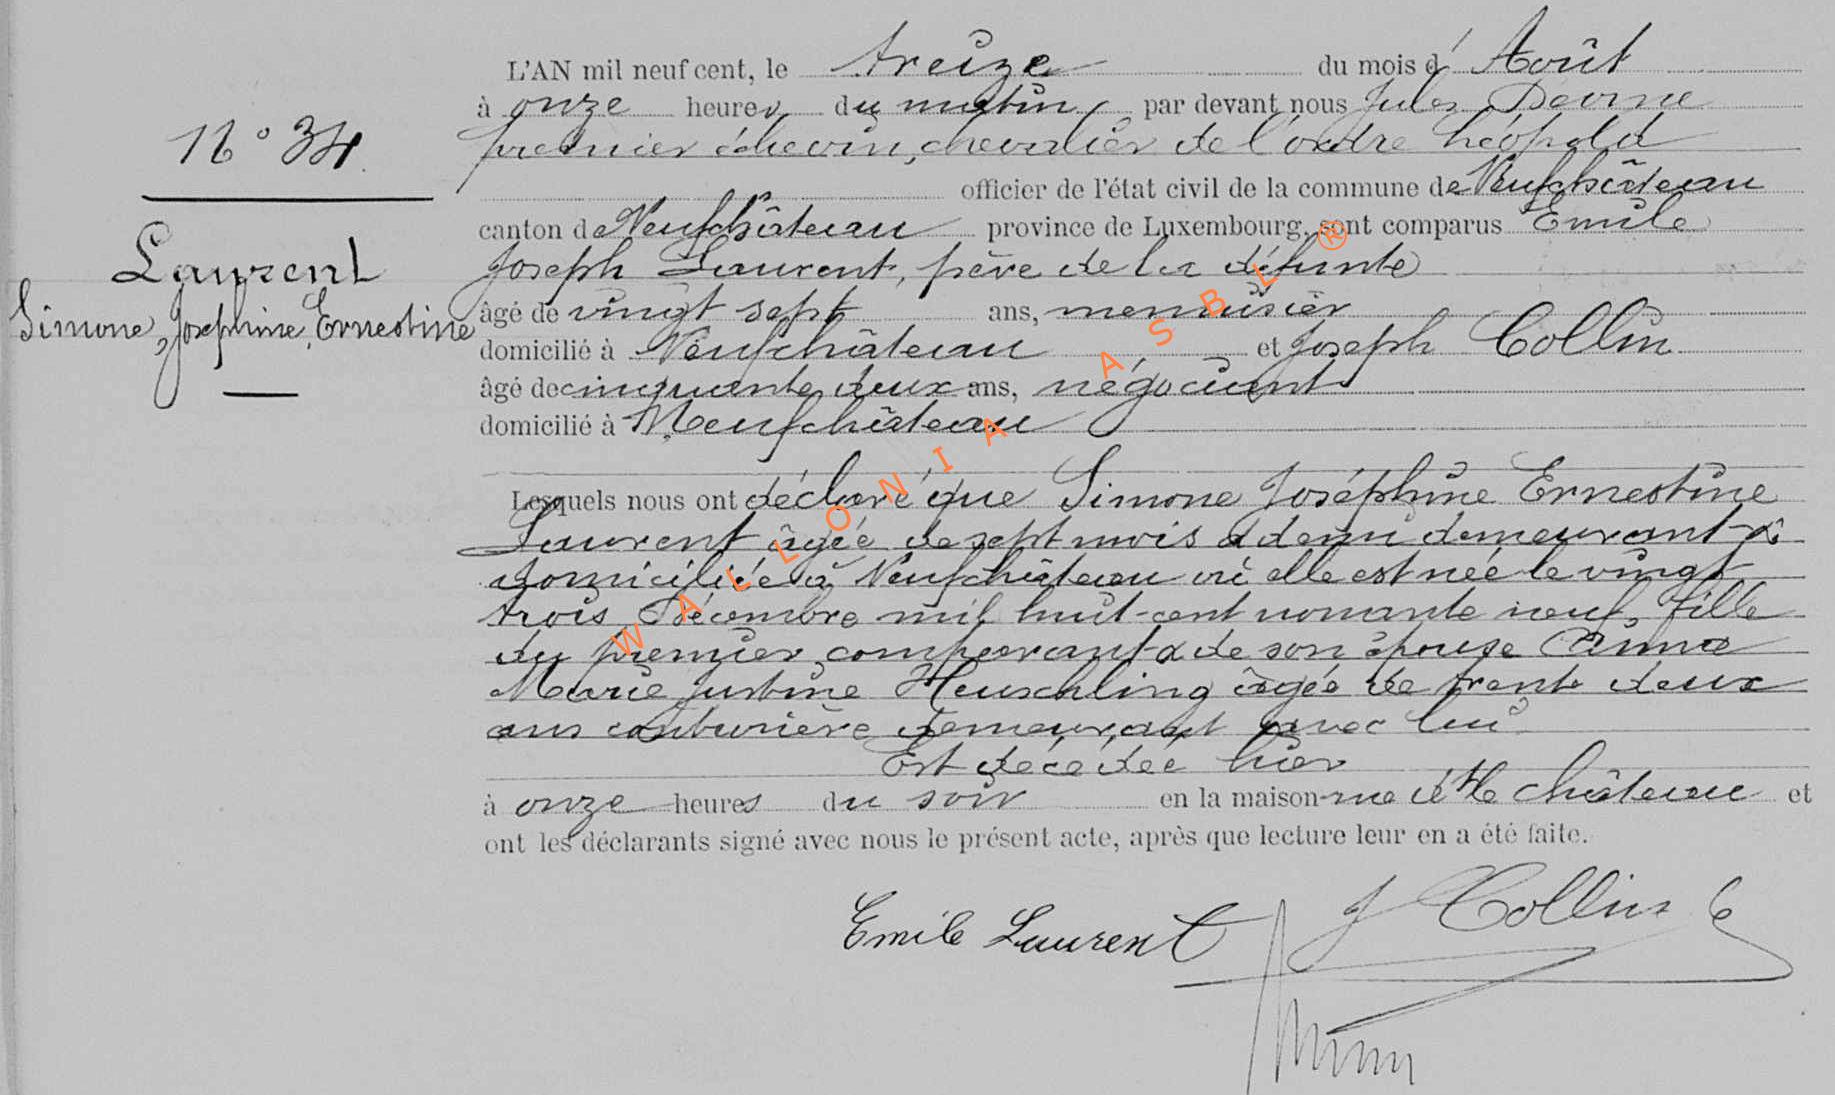 L'AN mil neuf cent, le treize du mois d'Août
à onze heures du matin, par devant nous Jules
premier échevin, chevalier de l'ordre Léopold
officier de l'état civil de la commune de Neufchâteau
canton de Neufchâteau province de Luxembourg, sont comparus Emile
Joseph Laurent, père de la défunte
âgé de vingt sept ans, menuisier
domicilié à Neufchâteau et Joseph Collin
âgé de cinquante deux ans, négociant
domicilié à Neufchâteau
Lesquels nous ont déclaré que Simone Joséphine Ernestine
Laurent âgée de sept mois & demi demeurant &
domiciliée à Neufchâteau où elle est née le vingt
trois Décembre mil huit-cent nonante neuf, fille
du premier comparant & de son épouse Anna
Marie Justine Heuschling âgée de trente deux
ans couturière demeurant avec lui
Est décédée hier
à onze heures du soir en la maison rue du château et
ont les déclarants signé avec nous le présent acte, après que lecture leur en a été faite.
Emile Laurent J Collin
N° 34
Laurent
Simone, Joséphine, Ernestine
WALLONIA ASBL ®